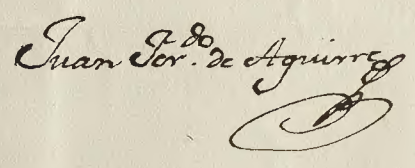 Juan Fer.ᵈᵒ de Aguirre